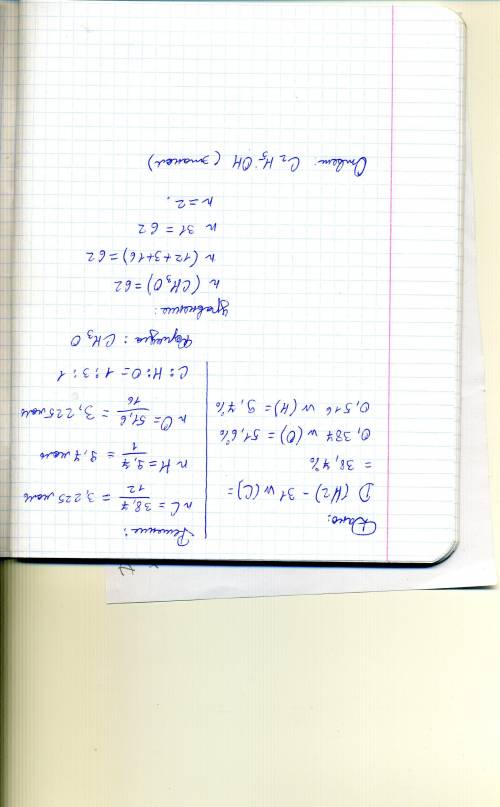 Дано:
D (H2) - 31 w (C) =
= 38,7%
0,387 w (O) = 51,6%
0,516 w (H) 9,7%
Решение:
n C = 38,7 / 12 = 3,225 моль
n H = 9,7 / 1 = 9,7 моль
n O = 51,6 / 16 = 3,225 моль
C : H : O = 1 : 3 : 1
Формула : CH3O
Уравнение :
n (CH3O) = 62
n (12+3+16) = 62
n 31 = 62
n = 2.
Ответ: C2H5OH (этанол)